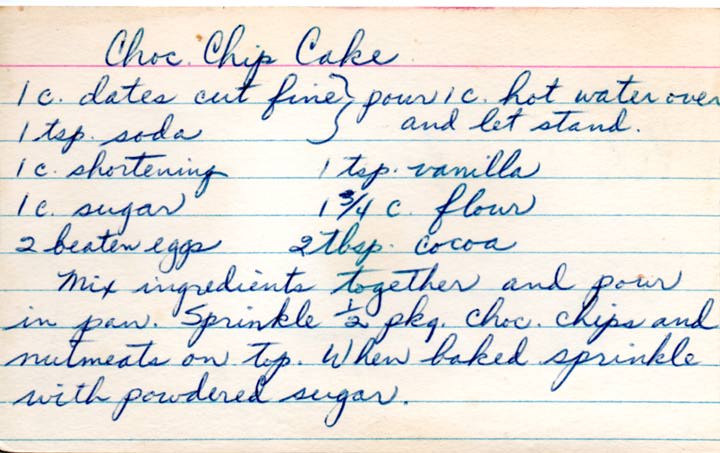 Choc. Chip Cake
1 c. dates cut fine } pour 1 c. hot water over
1 tsp. soda } and let stand.
1 c. shortening 1 tsp. vanilla
1 c. sugar 1 3/4 c. flour
2 beaten eggs 2 tbsp. cocoa
Mix ingredients together and pour
in pan. Sprinkle 1/2 pkg. choc. chips and
nutmeats on top. When baked sprinkle
with powdered sugar.